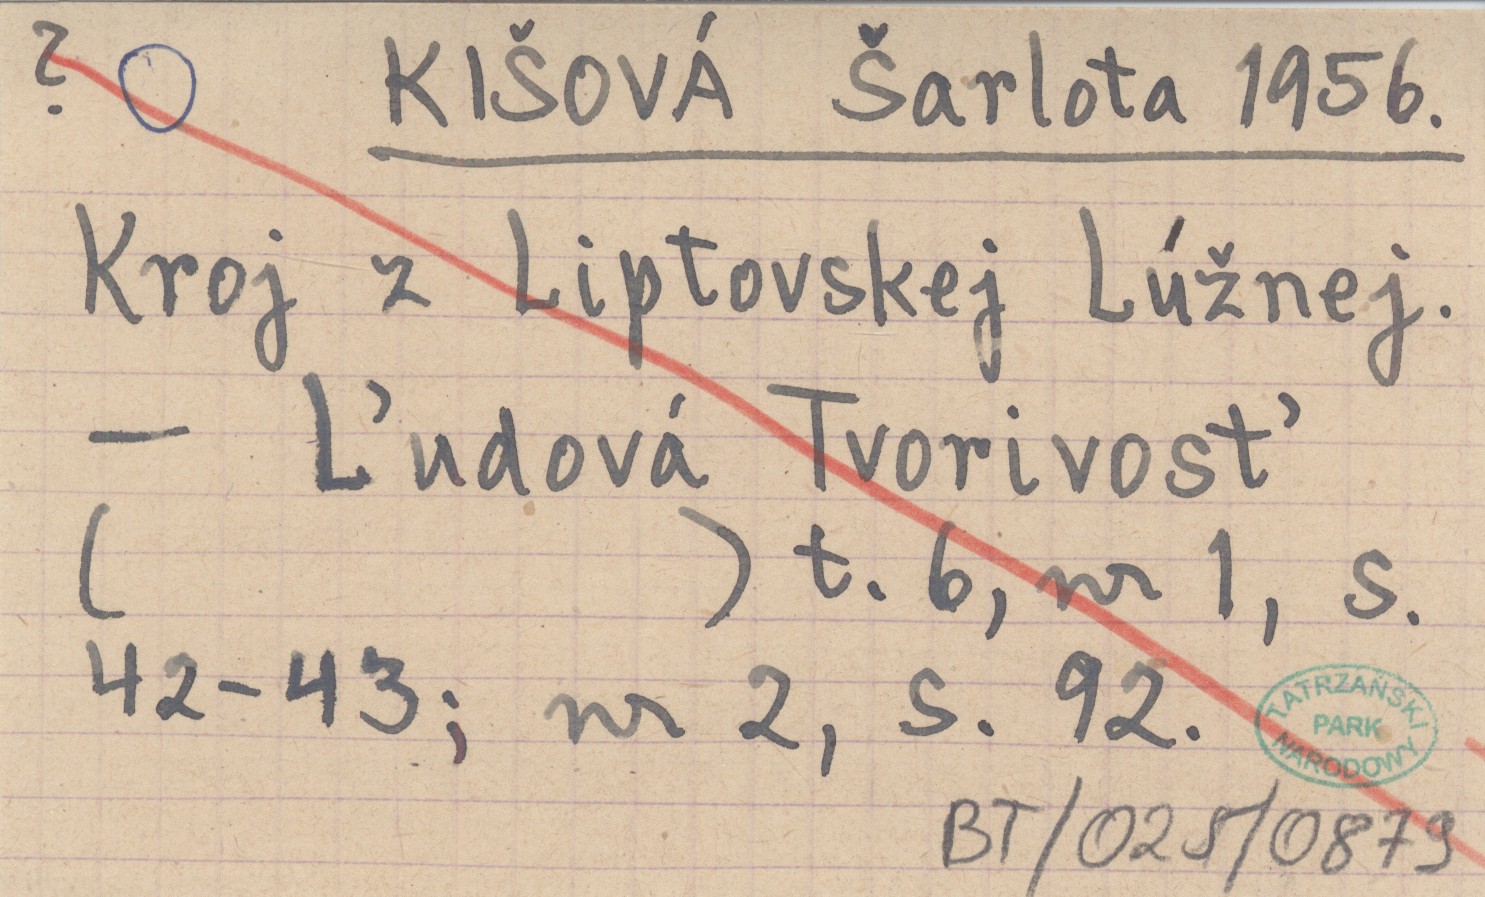 ? KIŠOVÁ Šarlota 1956.
Kroj z Liptovskej Lúžnej.
— Ľudová Tvorivosť
( ) t. 6, nr 1, s.
42-43; nr 2, s. 92.
TATRZAŃSKI
PARK
NARODOWY
BT/025/0879